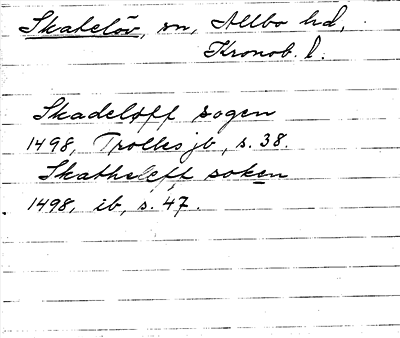 Skatelöv, sn, Allbo hd,
Kronob. l.
Skadeløff sogen
1498, Trolles jb, s. 38.
Skatheleff soken
1498, ib, s. 47.